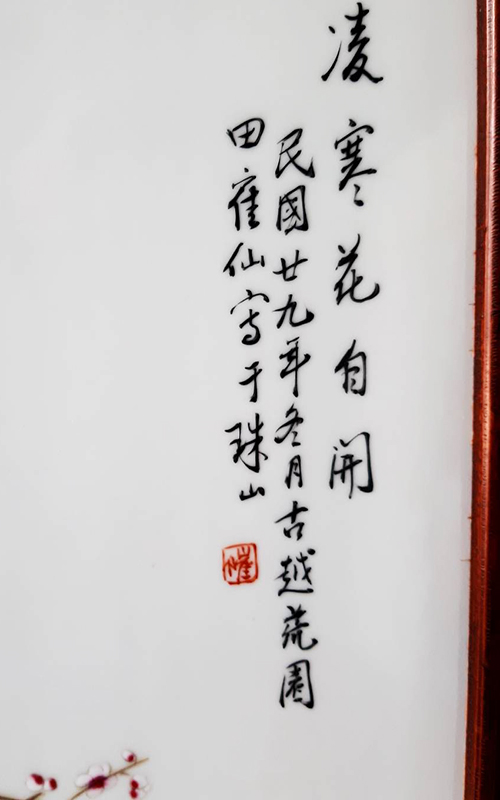 凌寒花自開
民國廿九年冬月古越荒園
田隺仙寫于珠山